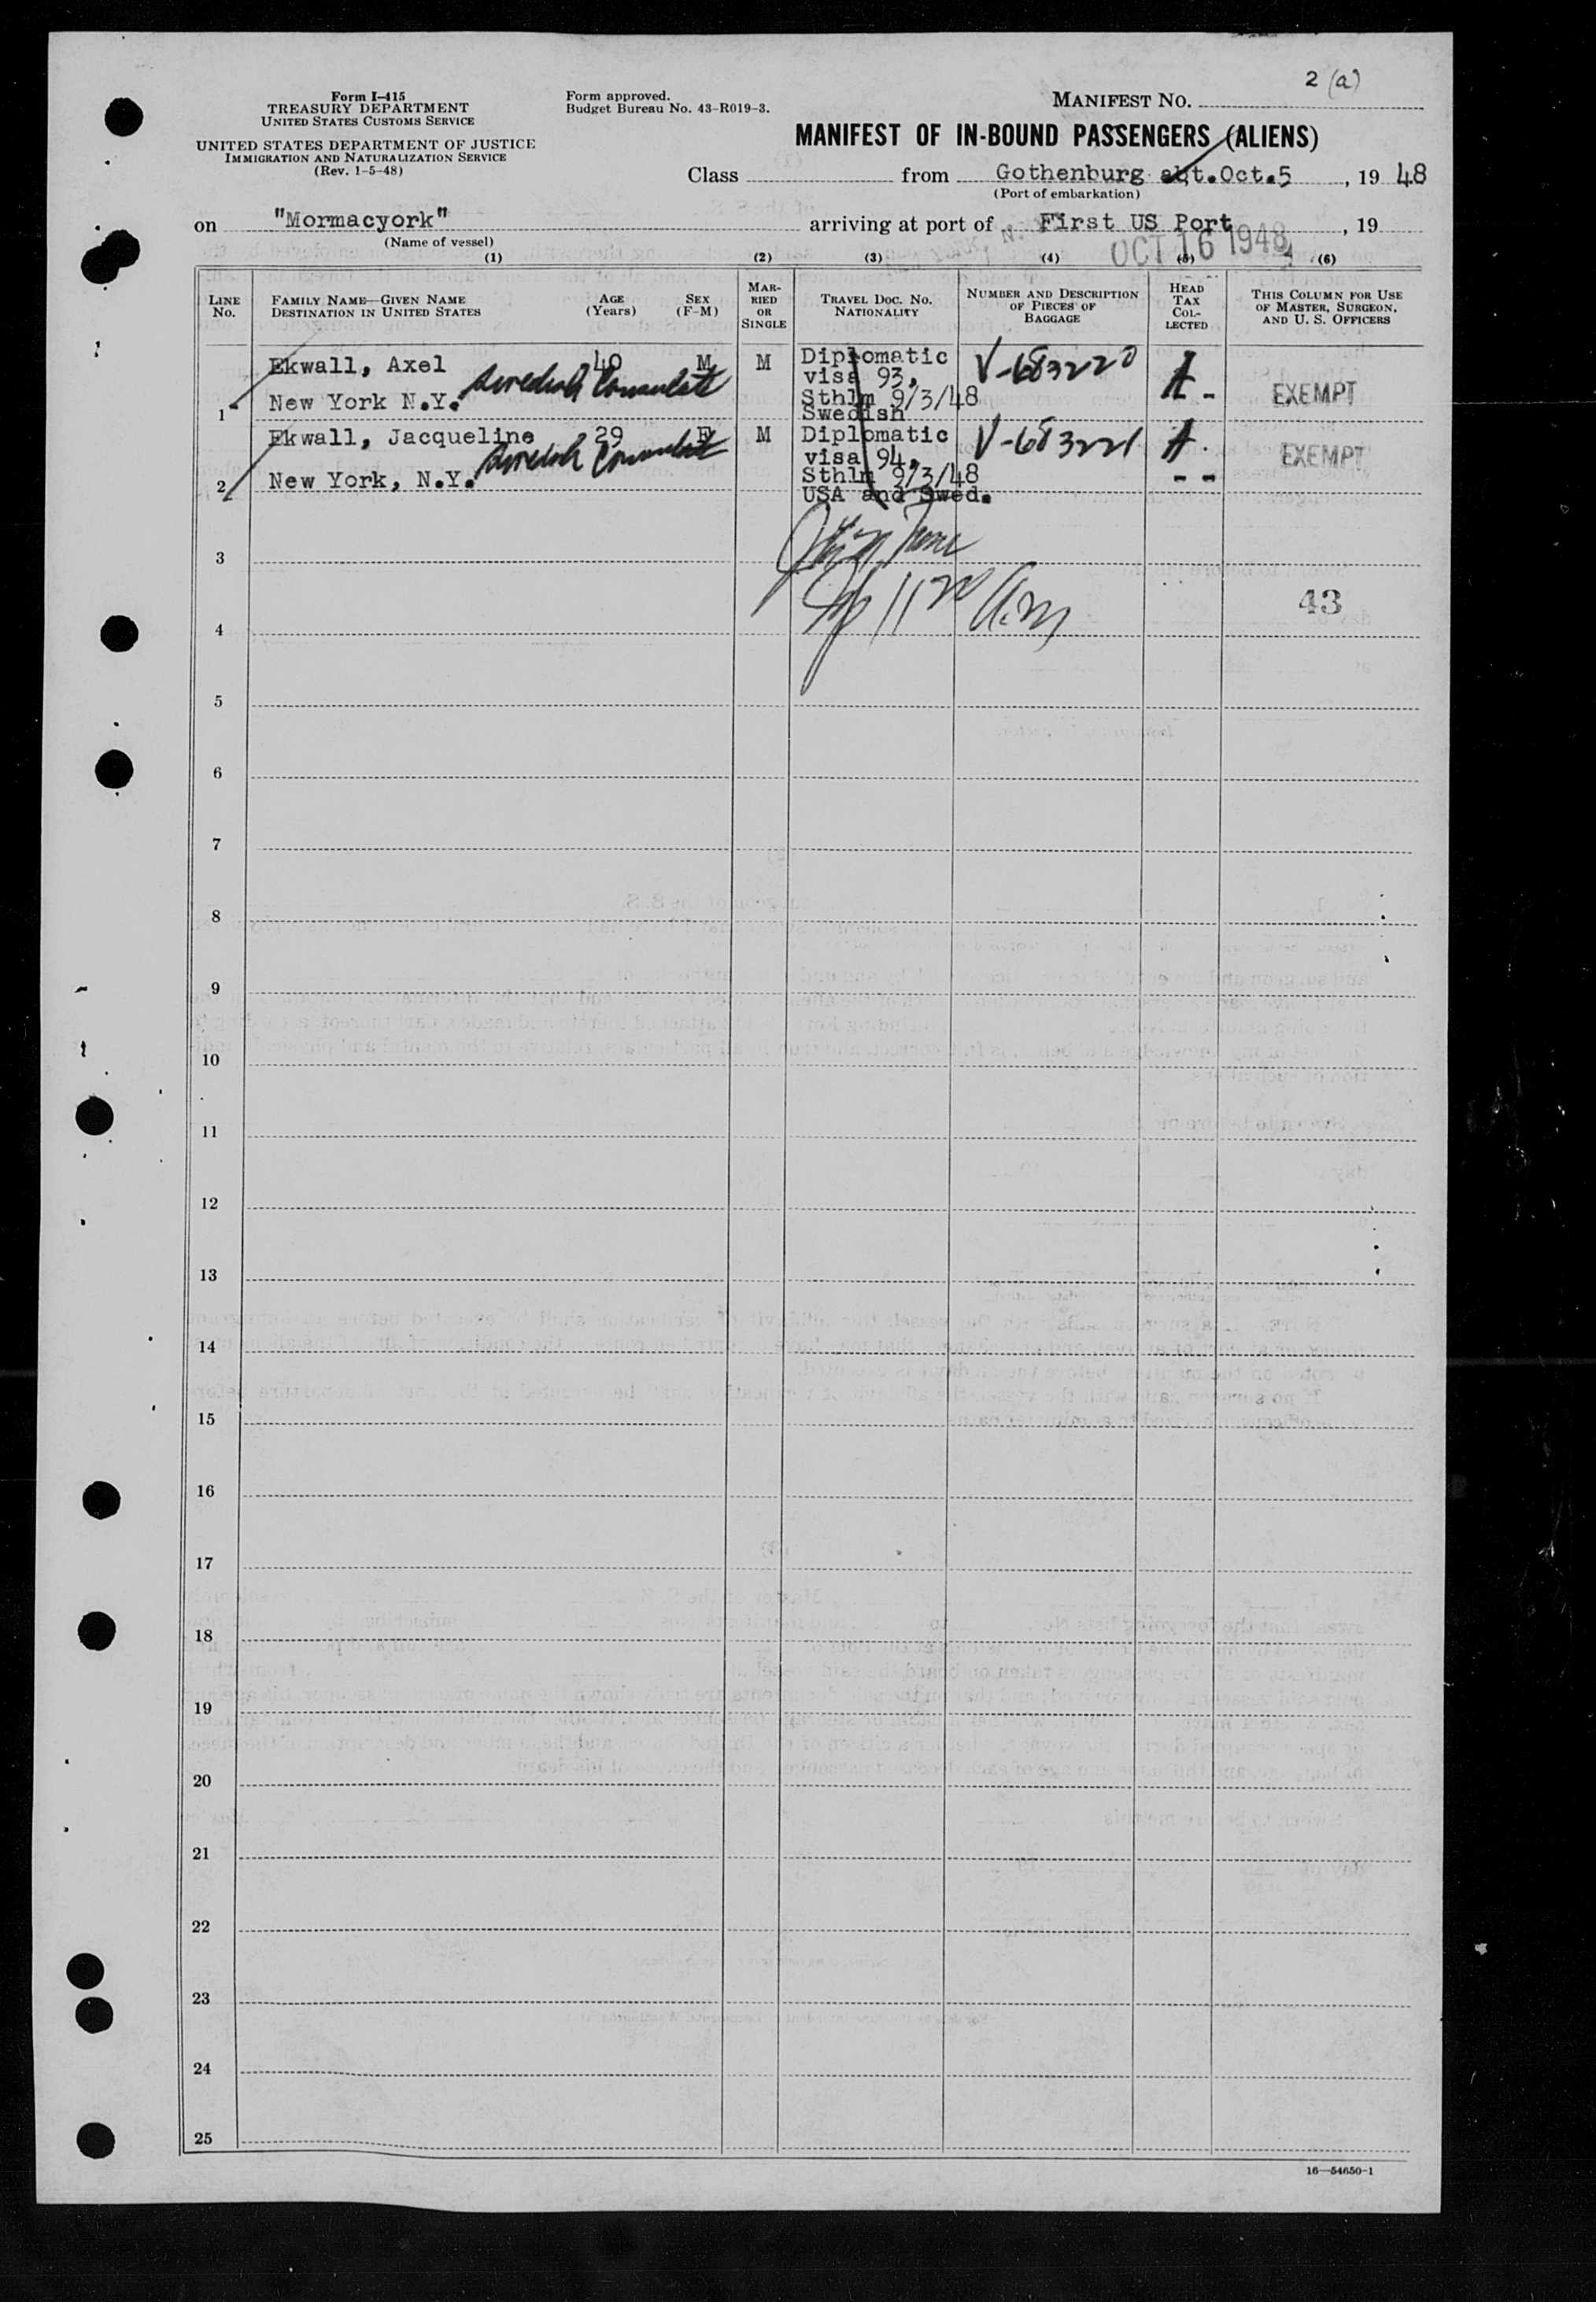 2 (a)
Form I-415
TREASURY DEPARTMENT
UNITED STATES CUSTOMS SERVICE
UNITED STATES DEPARTMENT OF JUSTICE
IMMIGRATION AND NATURALIZATION SERVICE
(Rev. 1-5-48)
Form approved.
Budget Bureau No. 43-R019-3.
MANIFEST NO.
MANIFEST OF IN-BOUND PASSENGERS (ALIENS)
Class from Gothenburg abt. Oct. 5, 19 48
(Port of embarkation)
on "Mormacyork" arriving at port of First US Port, 19
(Name of vessel)
OCT 16 1948
(1) (2) (3) (4) (5) (6)
LINE No.
FAMILY NAME—GIVEN NAME
DESTINATION IN UNITED STATES
AGE (Years)
SEX (F-M)
MARRIED OR SINGLE
TRAVEL DOC. NO. NATIONALITY
NUMBER AND DESCRIPTION OF PIECES OF BAGGAGE
HEAD TAX COLLECTED
THIS COLUMN FOR USE OF MASTER, SURGEON, AND U. S. OFFICERS
1 Ekwall, Axel 40 M M Diplomatic V-683220 A -
visa 93,
New York N.Y. Swedish Consulate Sthlm 9/3/48 EXEMPT
Swedish
2 Ekwall, Jacqueline 29 F M Diplomatic V-683221 A.
visa 94, EXEMPT
New York, N.Y. Swedish Consulate Sthlm 9/3/48 - -
USA and Swed.
3
1120 A.M
43
4
5
6
7
8
9
10
11
12
13
14
15
16
17
18
19
20
21
22
23
24
25
16—54650-1